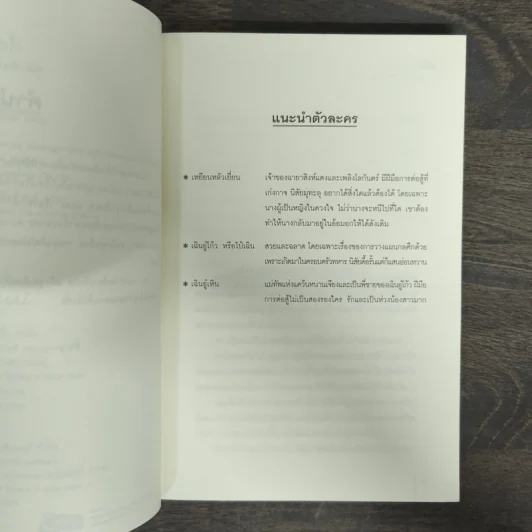 แนะนำตัวละคร
* เหยียนหลัวเยี่ยน เจ้าของฉายาสิงห์แดงและเพลิงโลกันตร์ มีฝีมือการต่อสู้ที่
เก่งกาจ นิสัยมุทะลุ อยากได้สิ่งใดแล้วต้องได้ โดยเฉพาะ
นางผู้เป็นหญิงในดวงใจ ไม่ว่านางจะหนีไปที่ใด เขาต้อง
ทำให้นางกลับมาอยู่ในอ้อมอกให้ได้ดังเดิม
* เฉินอู่โก้ว หรือโป๋เฉิน สวยและฉลาด โดยเฉพาะเรื่องของการวางแผนกลศึกด้วย
เพราะเกิดมาในครอบครัวทหาร นิสัยดื้อรั้นแต่ก็แสนอ่อนหวาน
* เฉินอู่เหิน แม่ทัพแห่งแคว้นหนานเจียงและเป็นพี่ชายของเฉินอู่โก้ว ฝีมือ
การต่อสู้ไม่เป็นสองรองใคร รักและเป็นห่วงน้องสาวมาก